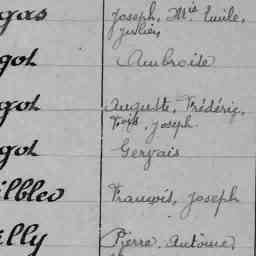 gas Joseph, Mie Emile,
Julien,
got Ambroise
got Auguste, Frédéric,
Joseph
got Gervais
François, Joseph
illy Pierre, Antoine,